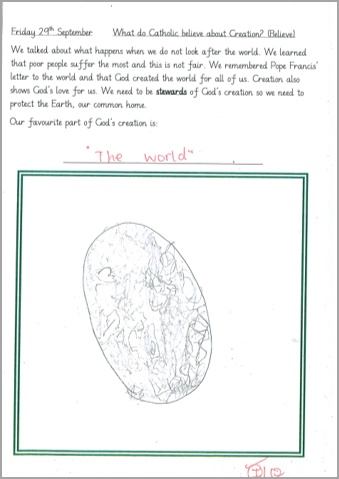 Friday 29th September What do Catholic believe about Creation? (Believe)
We talked about what happens when we do not look after the world. We learned
that poor people suffer the most and this is not fair. We remembered Pope Francis'
letter to the world and that God created the world for all of us. Creation also
shows God's love for us. We need to be stewards of God's creation so we need to
protect the Earth, our common home.
Our favourite part of God's creation is:
"The world"